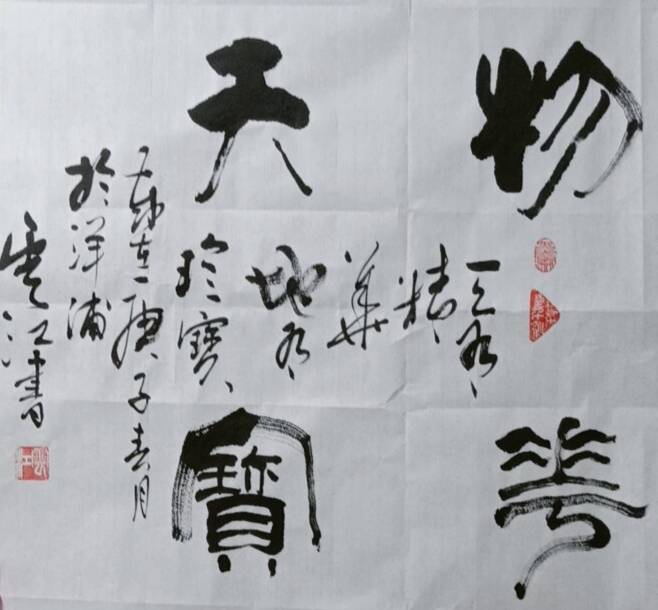 物華
天寶
天有
精
華
地有
珍寶
歲在庚子春月
於洋浦
雲江書